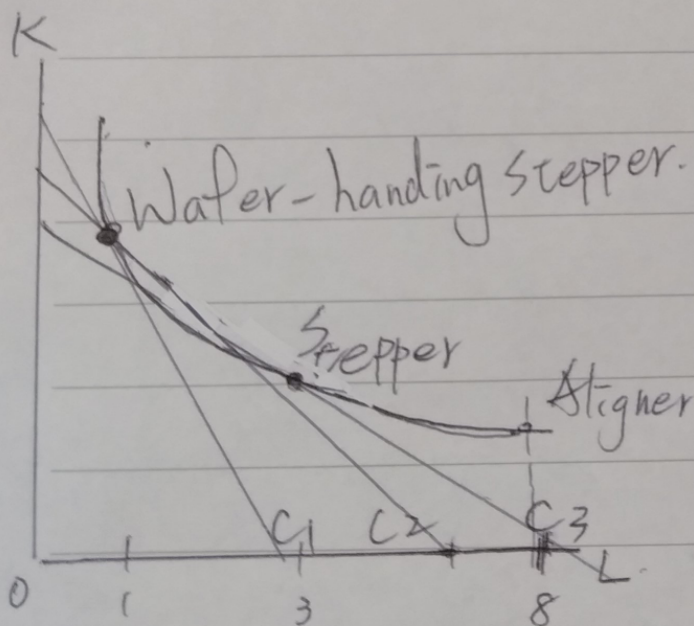 K
Wafer-handing stepper.
Stepper
Aligner
C1 C2 C3
L
0 1 3 8